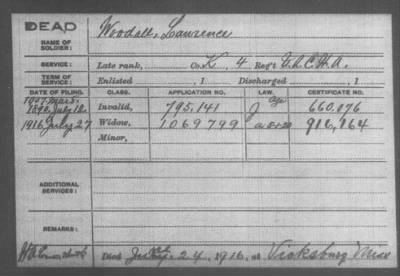 DEAD
NAME OF SOLDIER: Woodall, Lawrence
SERVICE: Late rank, Co. K 4 Reg't U.S.C.H.A.
TERM OF SERVICE: Enlisted , 1 Discharged , 1
DATE OF FILING. CLASS. APPLICATION NO. LAW. CERTIFICATE NO.
1907 Mar 5 Age
1890 July 12 Invalid, 795,141 J 660,076
1916 July 27 Widow, 1069799 a 8-1-20 916,164
Minor,
ADDITIONAL SERVICES:
REMARKS:
Died 24, 1916, at Vicksburg Miss